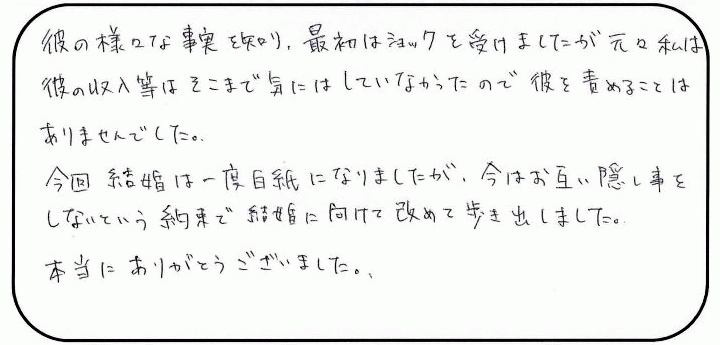 彼の様々な事実を知り、最初はショックを受けましたが元々私は
彼の収入等はそこまで気にはしていなかったので彼を責めることは
ありませんでした。
今回結婚は一度白紙になりましたが、今はお互い隠し事を
しないという約束で結婚に向けて改めて歩き出しました。
本当にありがとうございました。